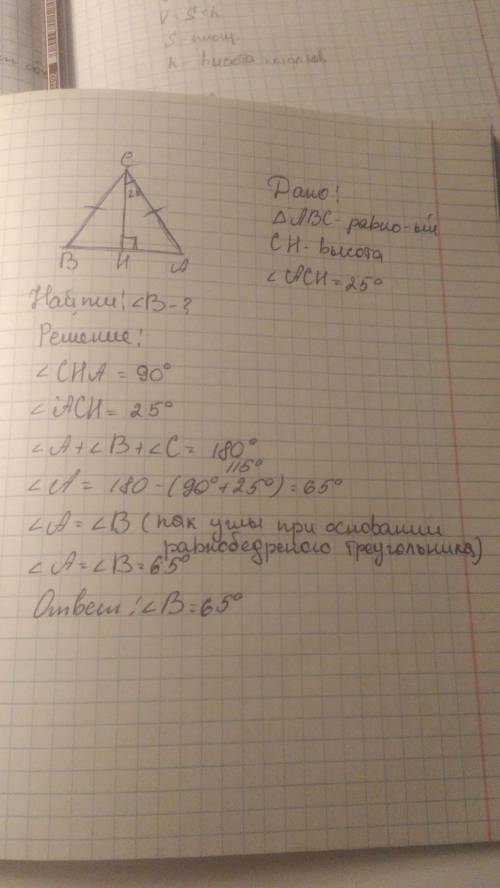 V = S · h
S - площ.
h - высота
C
25
B H A
Дано:
△ABC - равно-ый
CH - высота
∠ACH = 25°
Найти: ∠B - ?
Решение:
∠CHA = 90°
∠ACH = 25°
∠A + ∠B + ∠C = 180°
115°
∠A = 180 - (90° + 25°) = 65°
∠A = ∠B (как углы при основании
равнобедреного треугольника)
∠A = ∠B = 65°
Ответ: ∠B = 65°